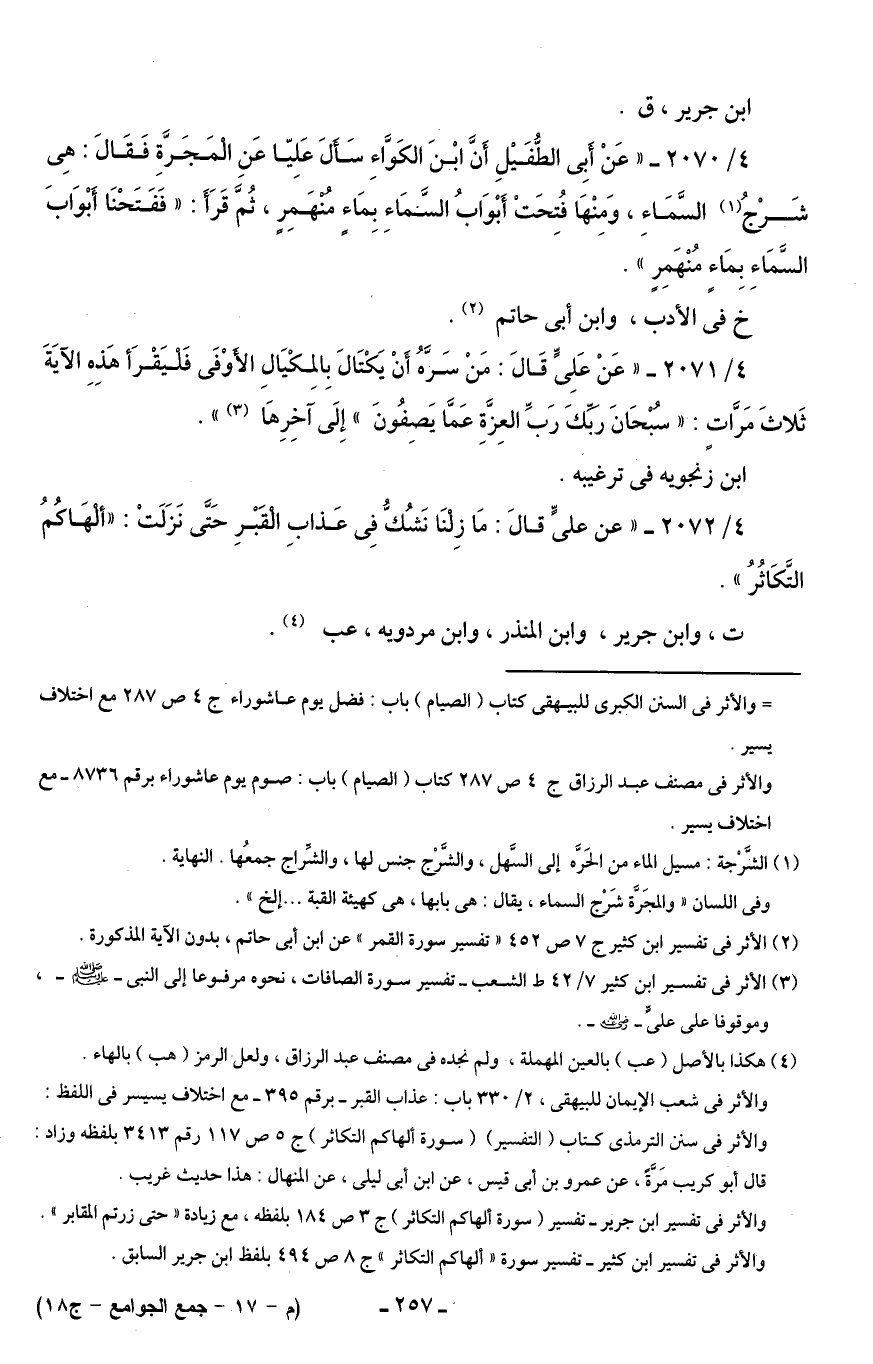 ابن جرير ، ق .
٤/ ٢٠٧٠ ـ « عَنْ أَبِى الطُّفَيْلِ أَنَّ ابْنَ الكَوَّاءِ سَأَلَ عَلِيّا عَنِ الْمَجَرَّةِ فَقَالَ : هِى
شَرْجُ(١) السَّمَاءِ ، وَمِنْهَا فُتِحَتْ أَبْوَابُ السَّمَاءِ بِمَاءٍ مُنْهَمِرٍ ، ثُمَّ قَرَأَ : « فَفَتَحْنَا أَبْوَابَ
السَّمَاءِ بِمَاءٍ مُنْهَمِرٍ » .
خ فى الأدب ، وابن أبى حاتم (٢) .
٤/ ٢٠٧١ ـ « عَنْ عَلِىٍّ قَالَ : مَنْ سَرَّهُ أَنْ يَكْتَالَ بِالمِكْيَالِ الأَوْفَى فَلْيَقْرَأ هَذِهِ الآيَةَ
ثَلاثَ مَرَّاتٍ : « سُبْحَانَ رَبِّكَ رَبِّ العِزَّةِ عَمَّا يَصِفُونَ » إِلَى آخِرِهَا (٣) » .
ابن زنجويه فى ترغيبه .
٤/ ٢٠٧٢ ـ « عن علىٍّ قالَ : مَا زِلْنَا نَشُكُّ فِى عَذَابِ الْقَبْرِ حَتَّى نَزَلَتْ : «أَلْهَاكُمُ
التَّكَاثُرُ » .
ت ، وابن جرير ، وابن المنذر ، وابن مردويه ، عب (٤) .
= والأثر فى السنن الكبرى للبيهقى كتاب ( الصيام ) باب : فضل يوم عاشوراء ج ٤ ص ٢٨٧ مع اختلاف
يسير .
والأثر فى مصنف عبد الرزاق ج ٤ ص ٢٨٧ كتاب ( الصيام ) باب : صوم يوم عاشوراء برقم ٨٧٣٦ ـ مع
اختلاف يسير .
(١) الشَّرْجة : مسيل الماء من الحَرَّه إلى السَّهل ، والشَّرْج جنس لها ، والشِّراج جمعُها . النهاية .
وفى اللسان « والمجَرَّة شَرْج السماء ، يقال : هى بابها ، هى كهيئة القبة ...إلخ » .
(٢) الأثر فى تفسير ابن كثير ج ٧ ص ٤٥٢ « تفسير سورة القمر » عن ابن أبى حاتم ، بدون الآية المذكورة .
(٣) الأثر فى تفسير ابن كثير ٧/ ٤٢ ط الشعب ـ تفسير سورة الصافات ، نحوه مرفوعا إلى النبى ـ ﷺ ـ ،
وموقوفا على علىٍّ ـ رضي الله عنه ـ .
(٤) هكذا بالأصل ( عب ) بالعين المهملة ، ولم نجده فى مصنف عبد الرزاق ، ولعل الرمز ( هب ) بالهاء .
والأثر فى شعب الإيمان للبيهقى ، ٢/ ٣٣٠ باب : عذاب القبر ـ برقم ٣٩٥ ـ مع اختلاف يسيسر فى اللفظ :
والأثر فى سنن الترمذى كتاب ( التفسير) ( سورة ألهاكم التكاثر ) ج ٥ ص ١١٧ رقم ٣٤١٣ بلفظه وزاد :
قال أبو كريب مَرَّةً ، عن عمرو بن أبى قيس ، عن ابن أبى ليلى ، عن المنهال : هذا حديث غريب .
والأثر فى تفسير ابن جرير ـ تفسير ( سورة ألهاكم التكاثر ) ج ٣ ص ١٨٤ بلفظه ، مع زيادة « حتى زرتم المقابر » .
والأثر فى تفسير ابن كثير ـ تفسير سورة « ألهاكم التكاثر » ج ٨ ص ٤٩٤ بلفظ ابن جرير السابق .
ـ ٢٥٧ ـ (م - ١٧ - جمع الجوامع - ج١٨)